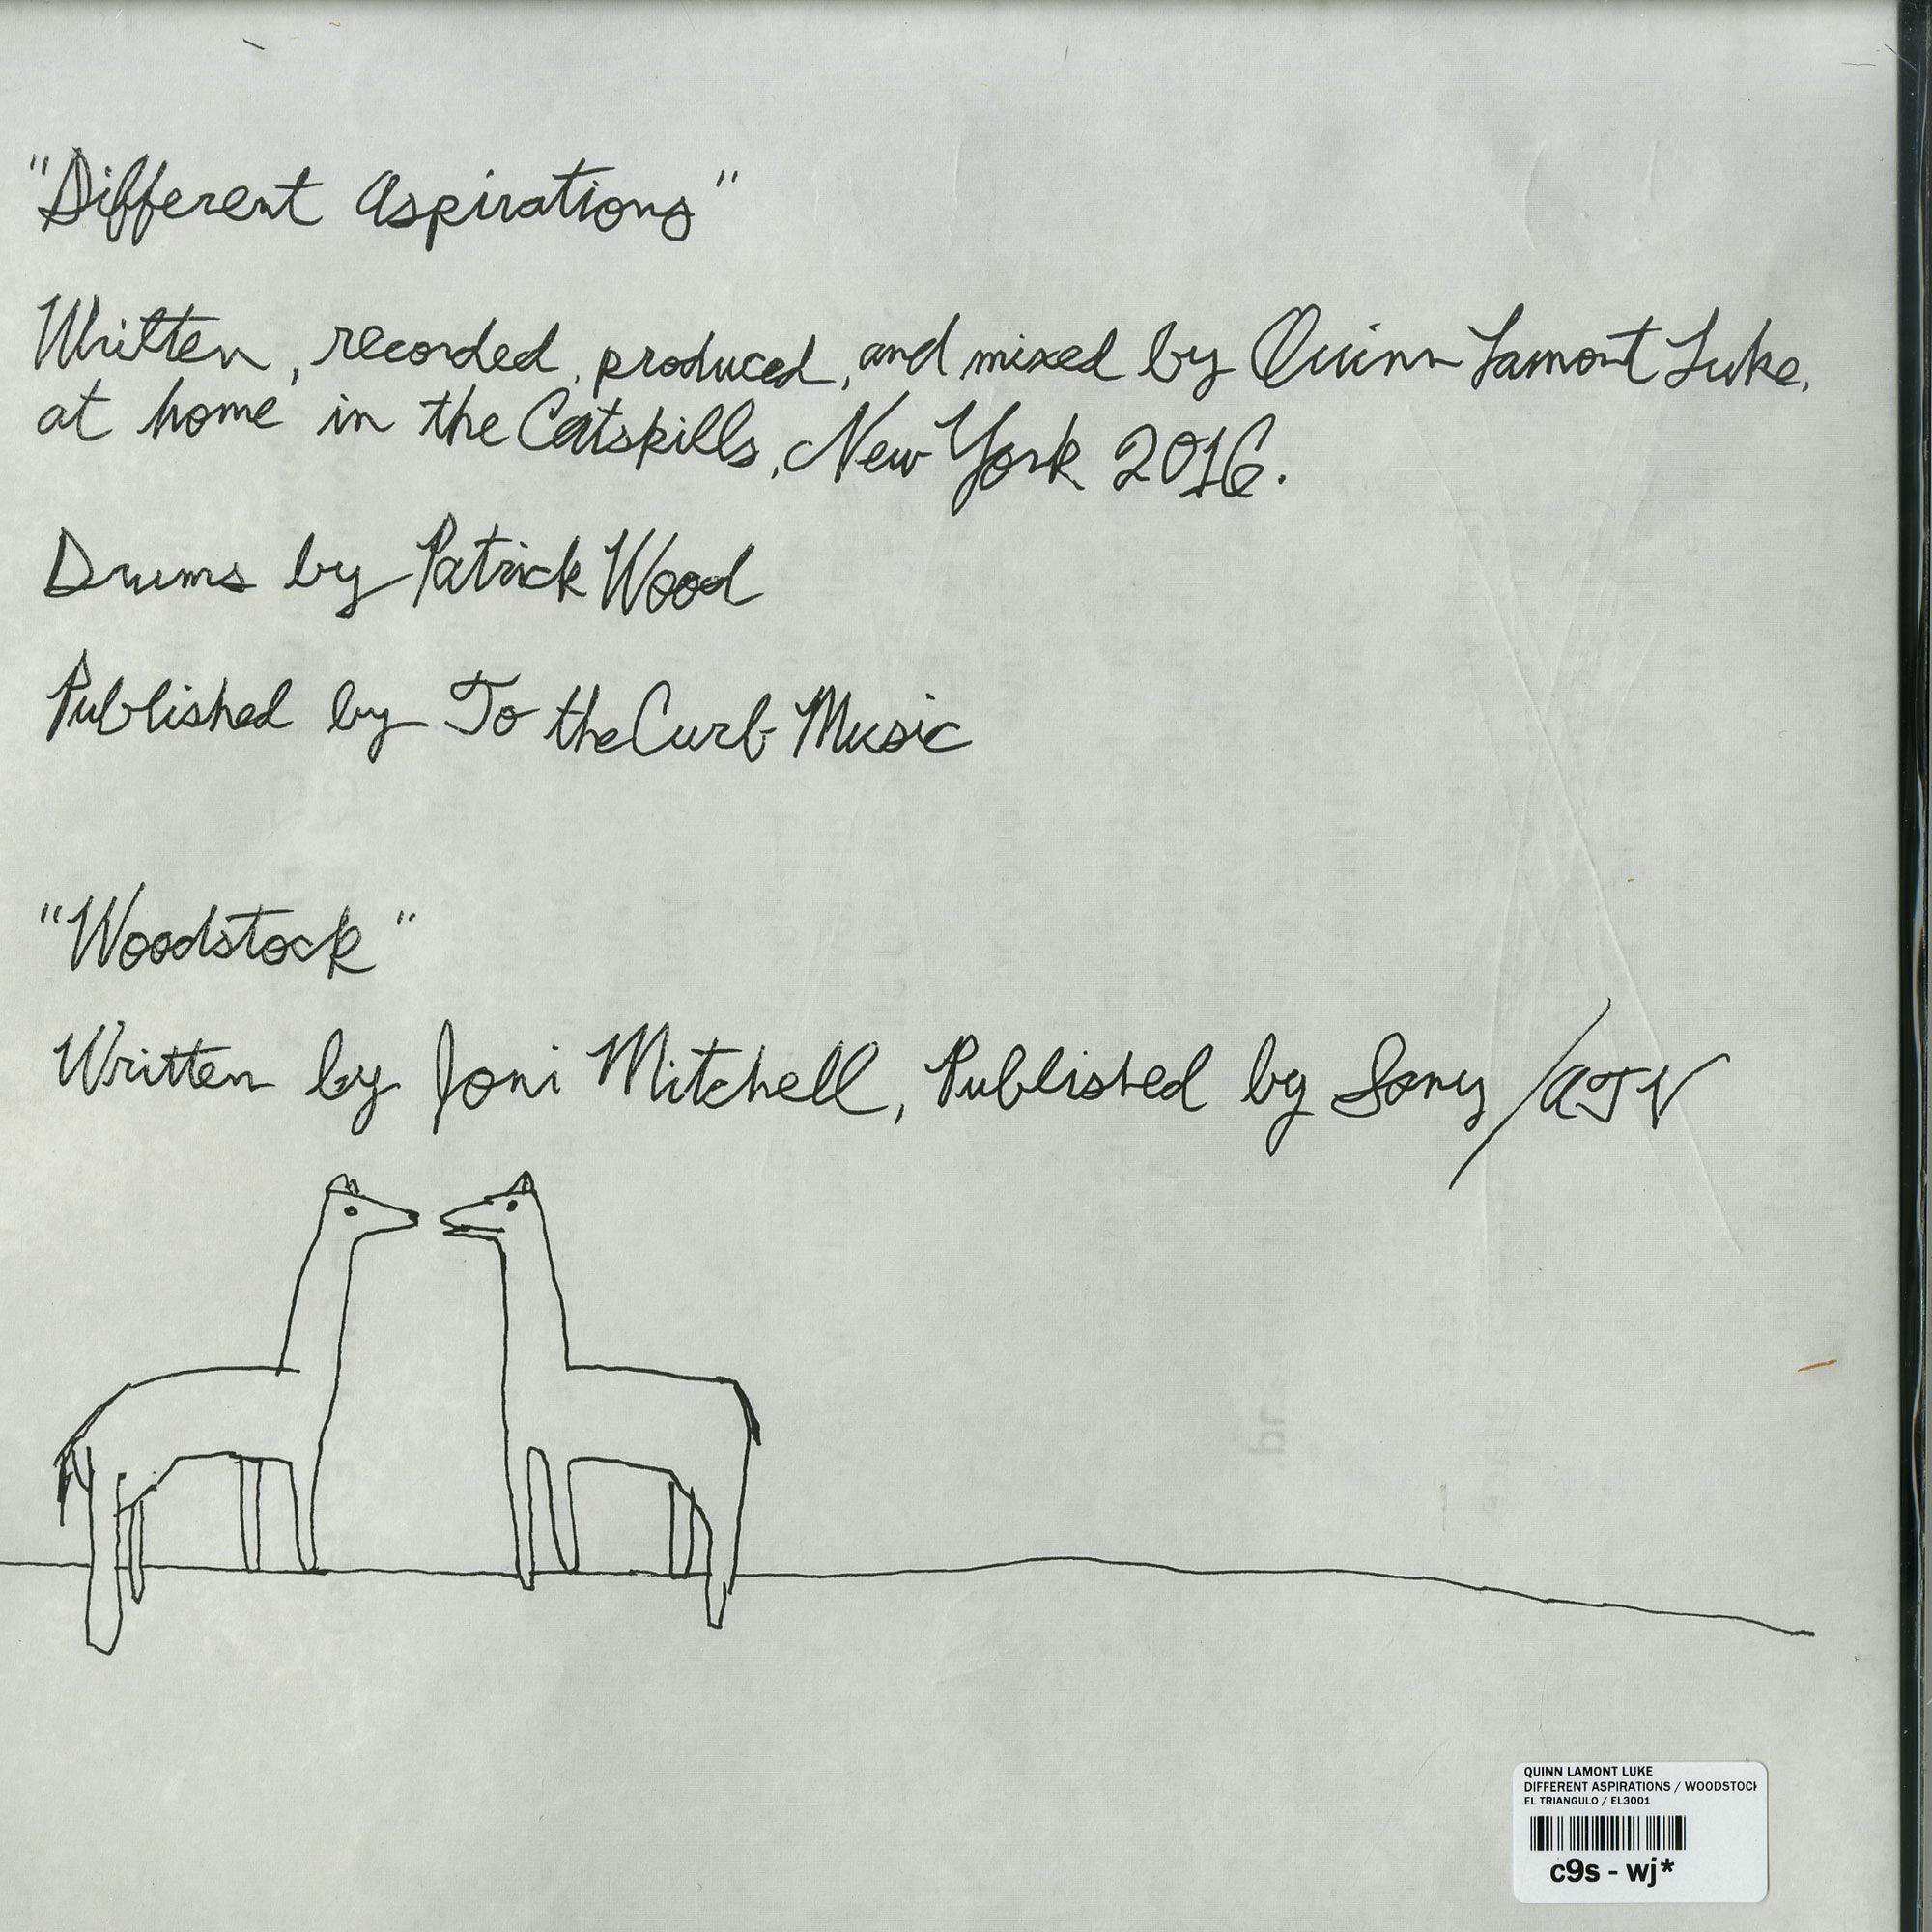 "Different Aspirations"
Written, recorded, produced, and mixed by Quinn Lamont Luke,
at home in the Catskills, New York 2016.
Drums by Patrick Wood
Published by To the Curb Music
"Woodstock"
Written by Joni Mitchell, Published by Sony / ATV
QUINN LAMONT LUKE
DIFFERENT ASPIRATIONS / WOODSTOCK
EL TRIANGULO / EL3001
c9s - wj*